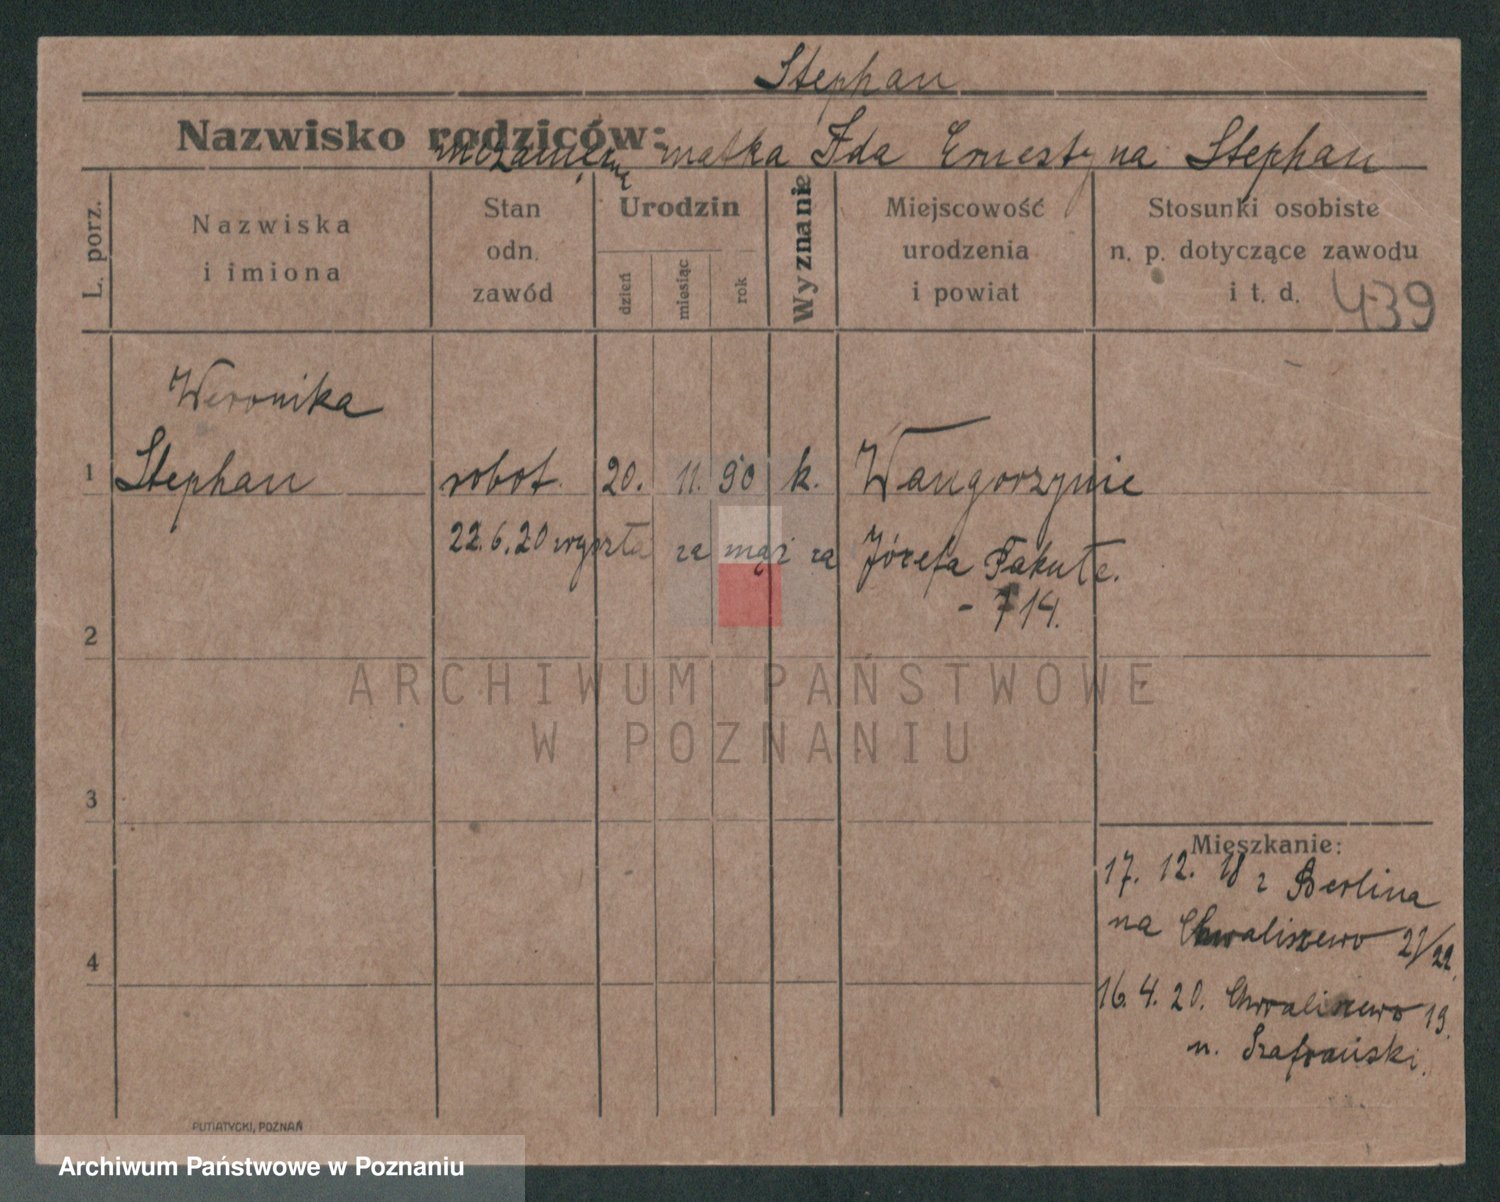 Stephan
Nazwisko rodziców: matka Ida Ernestyna Stephan
L. porz.
Nazwiska
i imiona
Stan
odn.
zawód
Urodzin
dzień
miesiąc
rok
Wyznanie
Miejscowość
urodzenia
i powiat
Stosunki osobiste
n. p. dotyczące zawodu
i t. d.
439
Weronika
1 Stephan robot. 20. 11. 90 k. Wangorzynie
22.6.20 wyszła za mąż za Józefa Pakułę.
- 714.
2
ARCHIWUM PAŃSTWOWE
W POZNANIU
3
Mieszkanie:
17. 12. 18 z Berlina
na Chwaliszewo 21/22
4
16. 4. 20. Chwaliszewo 19.
n. Szafrański.
PUTIATYCKI, POZNAŃ
Archiwum Państwowe w Poznaniu